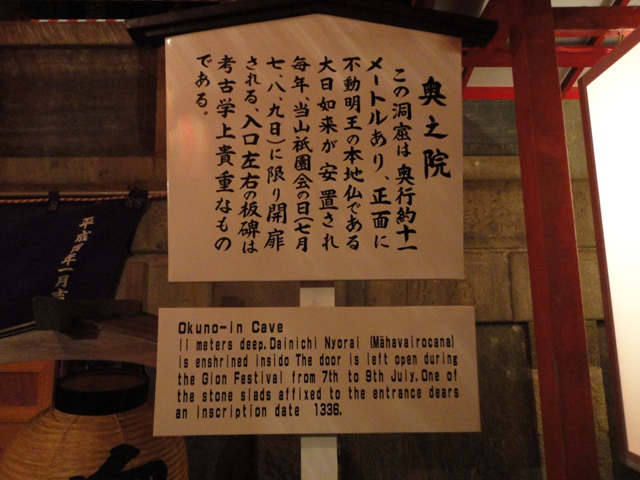 奥之院
この洞窟は奥行約十一
メートルあり、正面に
不動明王の本地仏である
大日如来が安置され
毎年当山祇園会の日(七月
七、八、九日)に限り開扉
される、入口左右の板碑は
考古学上貴重なもの
である。
Okuno-in Cave
11 meters deep. Dainichi Nyorai (Mahavairocana)
is enshrined insido The door is left open during
the Gion Festival from 7th to 9th July. One of
the stone slads affixed to the entrance dears
an inscription date 1336.
平成 年一月吉